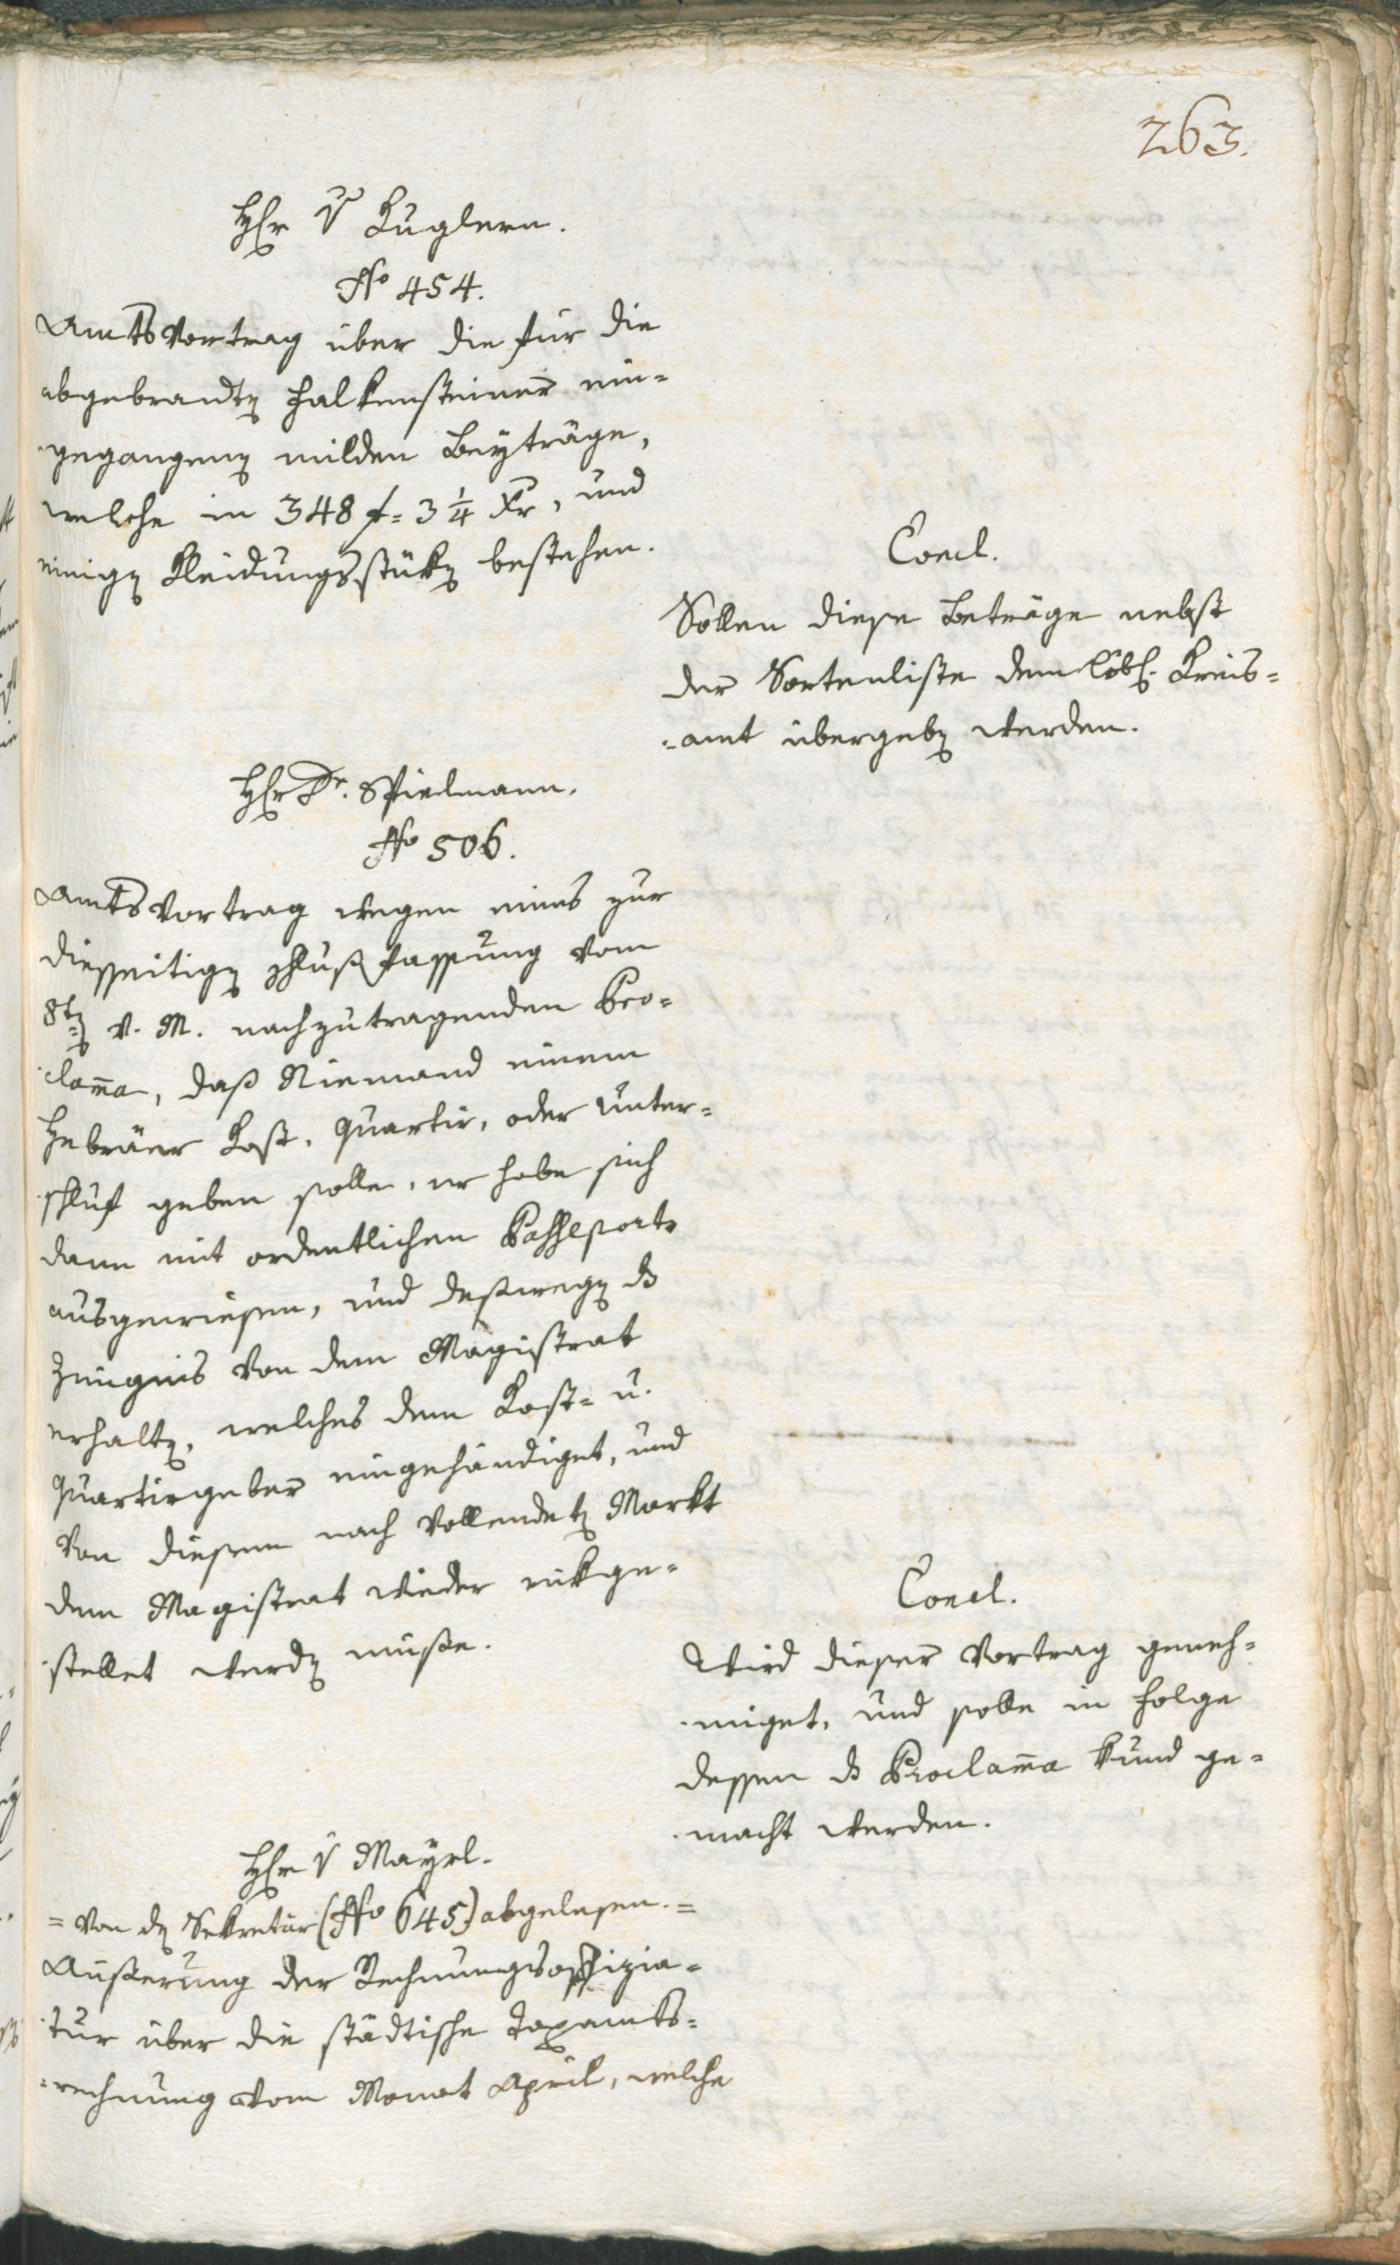 263.
Hr v Kuglern.
No 454.
Amtsvortrag über die für die
abgebrandten Falkensteiner ein-
gegangenen milden Beyträge,
welche in 348 f = 3 1/4 Xr, und
einigen Kleidungsstüken bestehen.
Concl.
Sollen diese Beträge nebst
der Sortenliste dem löbl. Kreis-
-amt übergeben werden.
Hr Dr. Spielmann.
No 506.
Amtsvortrag wegen eines zur
diesseitigen Schlußfassung vom
8ten v. M. nachzutragenden Pro-
clama, daß Niemand einem
Hebräer Kost, Quartir, oder Unter-
schluf geben solle, er habe sich
dann mit ordentlichen Passeports
ausgewiesen, und deßwegen das
Zeugnis von dem Magistrat
erhalten, welches dem Kost- u.
Quartirgeber eingehändiget, und
von diesem nach vollendeten Markt
dem Magistrat wieder rükge-
stellet werden müße.
Concl.
Wird dieser Vortrag geneh-
miget, und solle in Folge
dessen das Proclama kund ge-
macht werden.
Hr v Mayrl.
= von den Sekretär (No 645) abgelesen. =
Äußerung der Rechnungsoffizia-
tur über die städtische Taxamts-
-rechnung vom Monat April, welche